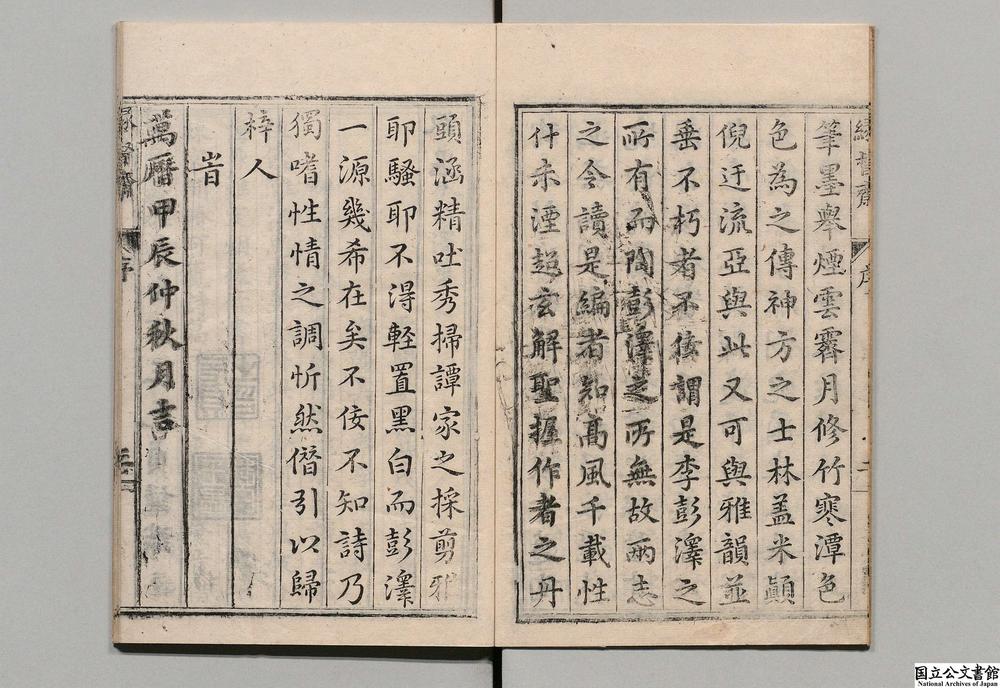 筆墨舉煙雲霽月修竹寒潭色
色為之傳神方之士林蓋米顛
倪迂流亞與此又可與雅韻並
垂不朽者不佞謂是李彭澤之
所有而陶彭澤之所無故兩志
之令讀是編者知高風千載性
什未湮超玄解聖握作者之丹
頭涵精吐秀掃譚家之採剪雅
耶騷耶不得輕置黑白而彭澤
一源幾希在矣不佞不知詩乃
獨嗜性情之調忻然僭引以歸
梓人
旹
萬曆甲辰仲秋月吉
序
國立公文書館
National Archives of Japan